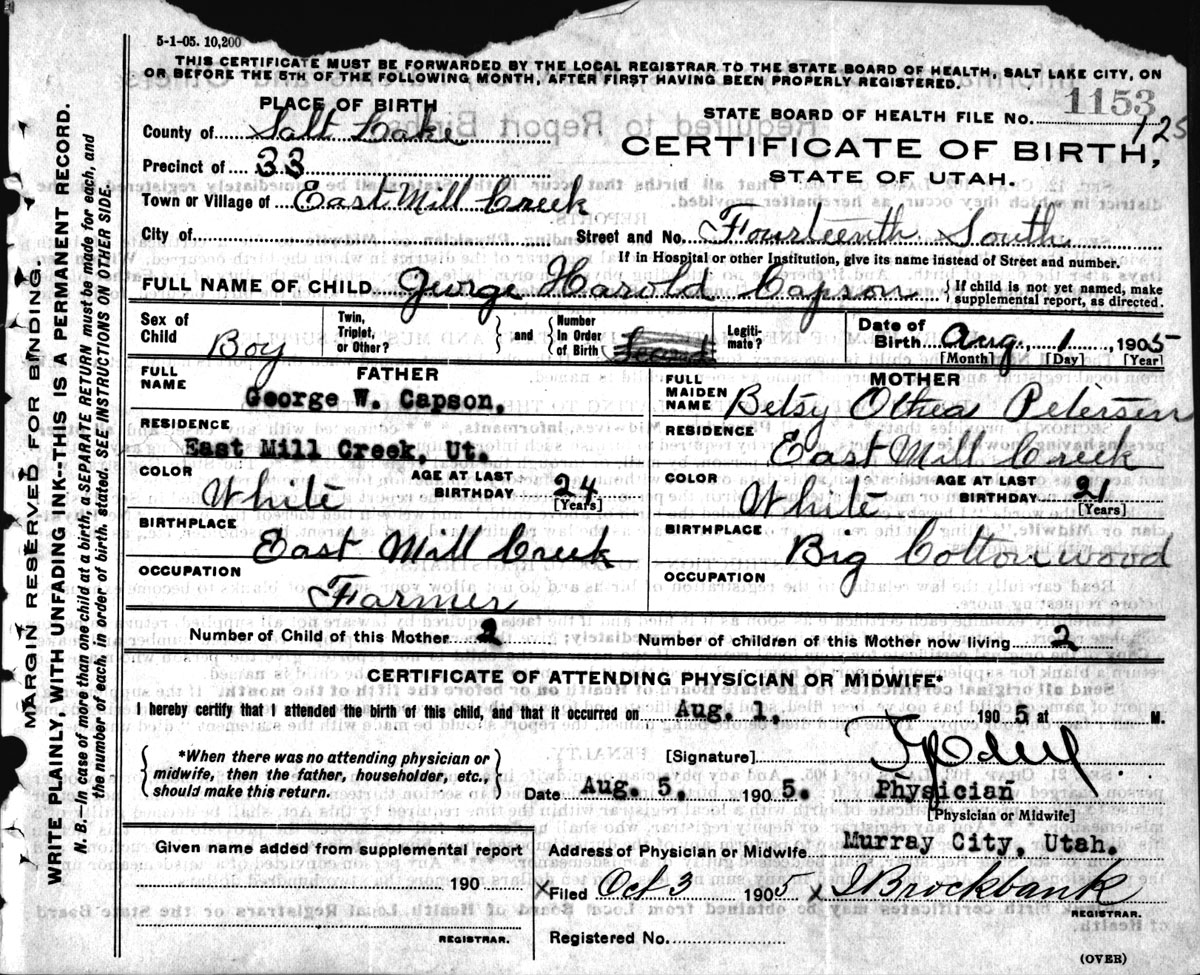 5-1-05. 10,200
THIS CERTIFICATE MUST BE FORWARDED BY THE LOCAL REGISTRAR TO THE STATE BOARD OF HEALTH, SALT LAKE CITY, ON
OR BEFORE THE 5TH OF THE FOLLOWING MONTH, AFTER FIRST HAVING BEEN PROPERLY REGISTERED.
MARGIN RESERVED FOR BINDING.
WRITE PLAINLY, WITH UNFADING INK--THIS IS A PERMANENT RECORD.
N. B.—In case of more than one child at a birth, a SEPARATE RETURN must be made for each, and
the number of each, in order of birth, stated. SEE INSTRUCTIONS ON OTHER SIDE.
PLACE OF BIRTH
County of Salt Lake
Precinct of 33
Town or Village of East Mill Creek
City of
STATE BOARD OF HEALTH FILE NO. 1153
125
CERTIFICATE OF BIRTH,
STATE OF UTAH.
Street and No. Fourteenth South
If in Hospital or other Institution, give its name instead of Street and number.
FULL NAME OF CHILD George Harold Capson { If child is not yet named, make
supplemental report, as directed.
Sex of Child Boy
Twin, Triplet, or Other? } and { Number In Order of Birth
Legiti- mate?
Date of Birth Aug. 1, 1905
[Month] [Day] [Year]
FATHER
FULL NAME George W. Capson,
RESIDENCE East Mill Creek, Ut.
COLOR White AGE AT LAST BIRTHDAY 24 [Years]
BIRTHPLACE East Mill Creek
OCCUPATION Farmer
MOTHER
FULL MAIDEN NAME Betsy Othea Petersen
RESIDENCE East Mill Creek
COLOR White AGE AT LAST BIRTHDAY 21 [Years]
BIRTHPLACE Big Cottonwood
OCCUPATION
Number of Child of this Mother 2 Number of children of this Mother now living 2
CERTIFICATE OF ATTENDING PHYSICIAN OR MIDWIFE*
I hereby certify that I attended the birth of this child, and that it occurred on Aug. 1. 1905 at M.
{ *When there was no attending physician or
midwife, then the father, householder, etc.,
should make this return. }
[Signature]
Date Aug. 5. 1905. Physician
[Physician or Midwife]
Given name added from supplemental report
190
REGISTRAR.
Address of Physician or Midwife Murray City, Utah.
x Filed Oct 3 1905 x Brockbank
REGISTRAR.
Registered No.
(OVER)